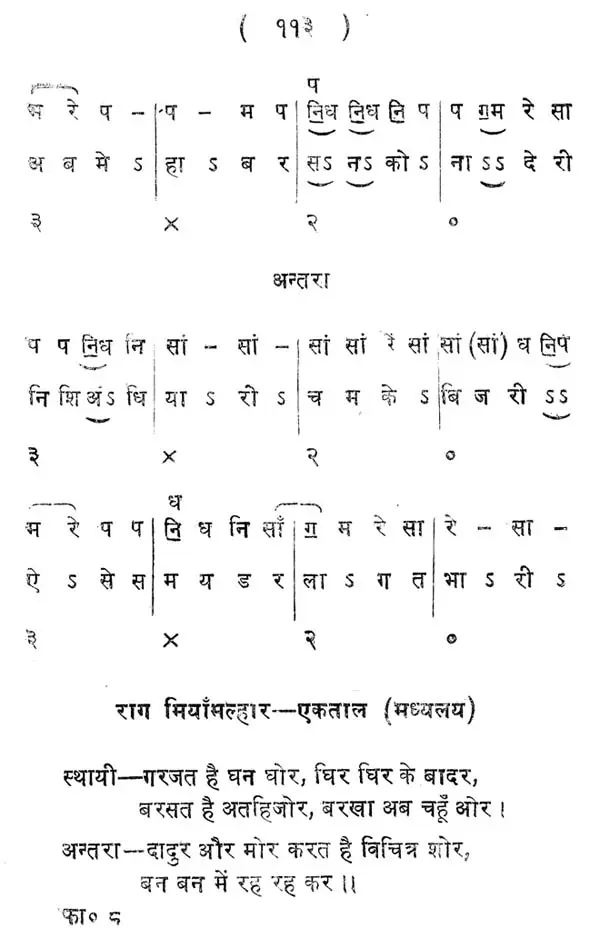 ( ११३ )
प
म रे प - | प - म प | नि॒ध नि॒ध नि॒ प | प ग॒म रे सा
अ ब मे ऽ | हा ऽ ब र | सऽ नऽ को ऽ | ना ऽऽ दे री
३ × २ ०
अन्तरा
प प नि॒ध नि | सां - सां - | सां सां रें सां | सां (सां) ध नि॒प
नि शि अंऽ धि | या ऽ री ऽ | च म के ऽ | बि ज री ऽऽ
३ × २ ०
ध
म रे प प | नि॒ ध नि साँ | ग॒ म रे सा | रे - सा -
ऐ ऽ से स | म य ड र | ला ऽ ग त | भा ऽ री ऽ
३ × २ ०
राग मियाँमल्हार—एकताल (मध्यलय)
स्थायी—गरजत है घन घोर, घिर घिर के बादर,
बरसत है अतहिजोर, बरखा अब चहूँ ओर ।
अन्तरा—दादुर और मोर करत है विचित्र शोर,
बन बन में रह रह कर ।।
फा० ८